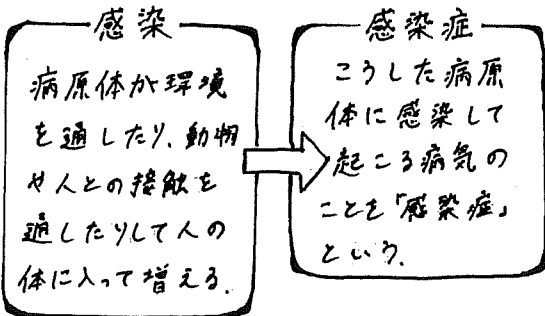 感染
病原体が環境
を通したり、動物
や人との接触を
通したりして人の
体に入って増える。
感染症
こうした病原
体に感染して
起こる病気の
ことを「感染症」
という。